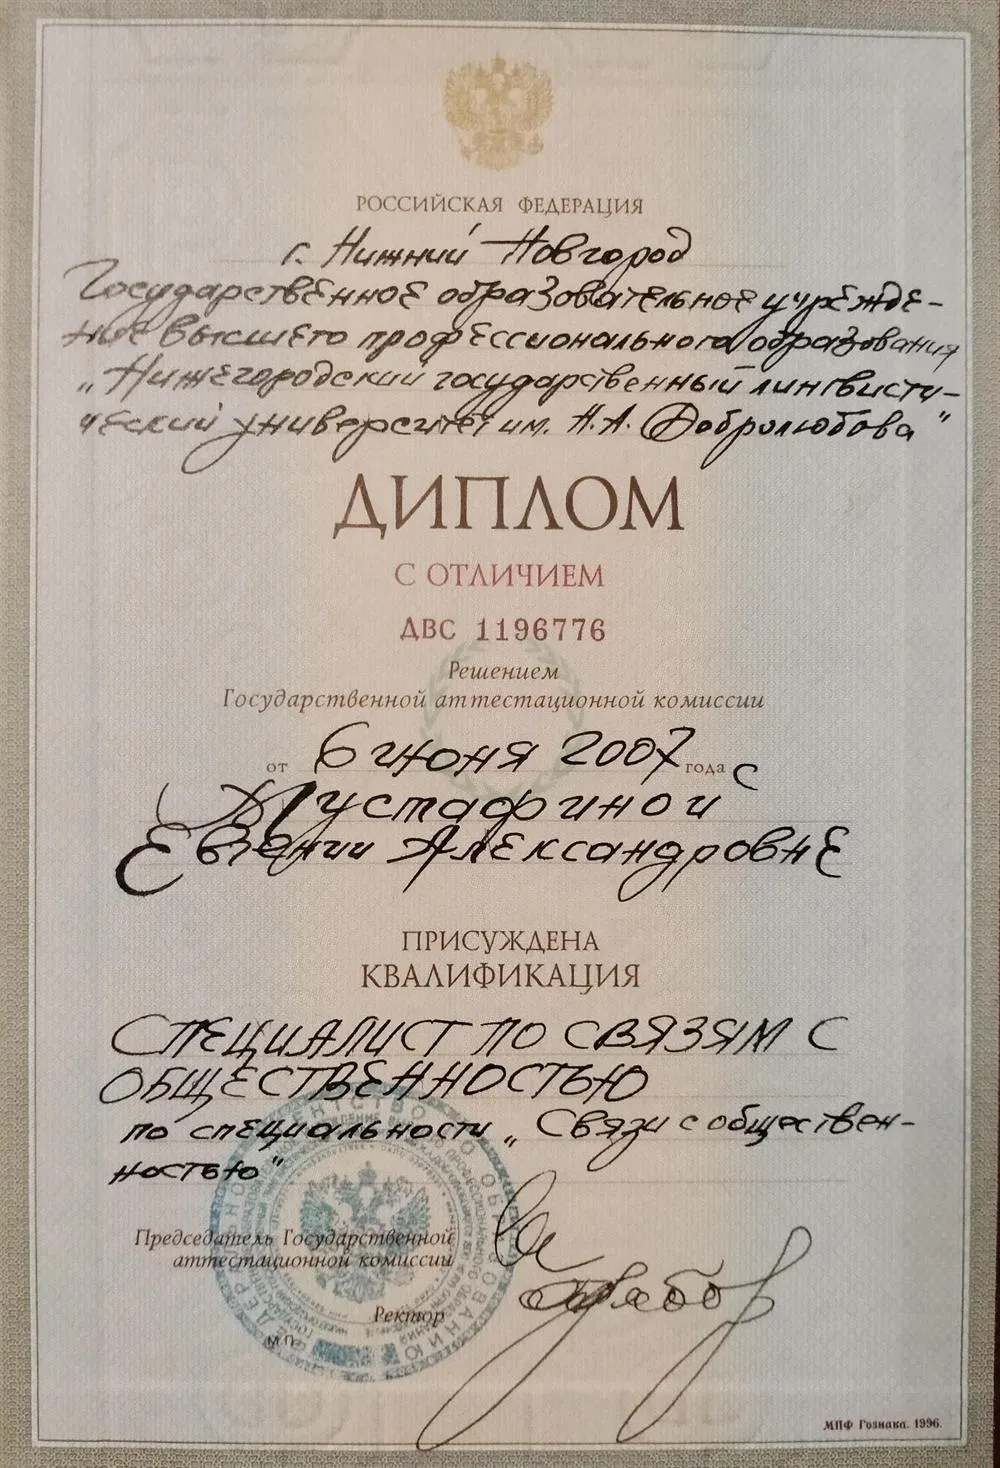 РОССИЙСКАЯ ФЕДЕРАЦИЯ
г. Нижний Новгород
Государственное образовательное учрежде-
ние высшего профессионального образования
„Нижегородский государственный лингвисти-
ческий университет им. Н.А. Добролюбова"
ДИПЛОМ
С ОТЛИЧИЕМ
ДВС 1196776
Решением
Государственной аттестационной комиссии
от 6 июня 2007 года
Мустафиной
Евгении Александровне
ПРИСУЖДЕНА
КВАЛИФИКАЦИЯ
СПЕЦИАЛИСТ ПО СВЯЗЯМ С
ОБЩЕСТВЕННОСТЬЮ
по специальности „Связи с обществен-
ностью"
Председатель Государственной
аттестационной комиссии
Ректор
М.П.
МПФ Гознака. 1996.